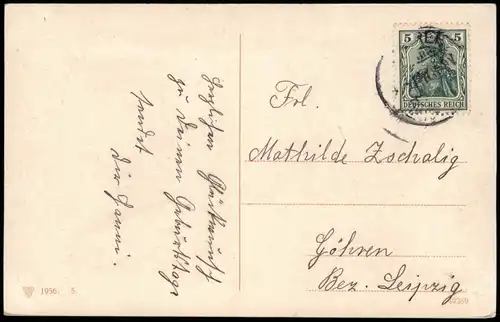 Herzlichen Glückwunsch
zu Deinem Geburtstage
sendet
Dir Hanni.
5 5
DEUTSCHES REICH
Frl.
Mathilde Zschalig
Göhren
Bez. Leipzig
1956. 5.